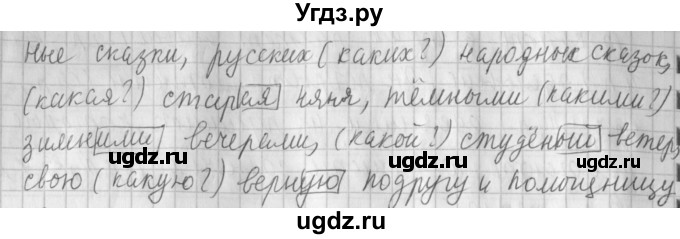 Угдз.ру
ные сказки, русских (каких?) народных сказок,
(какая?) старая няня, тёмными (какими?)
зимними вечерами, (какой?) студёный ветер,
свою (какую?) верную подругу и помощницу.
ugdz.ru ugdz.ru ugdz.ru
ugdz.ru ugdz.ru